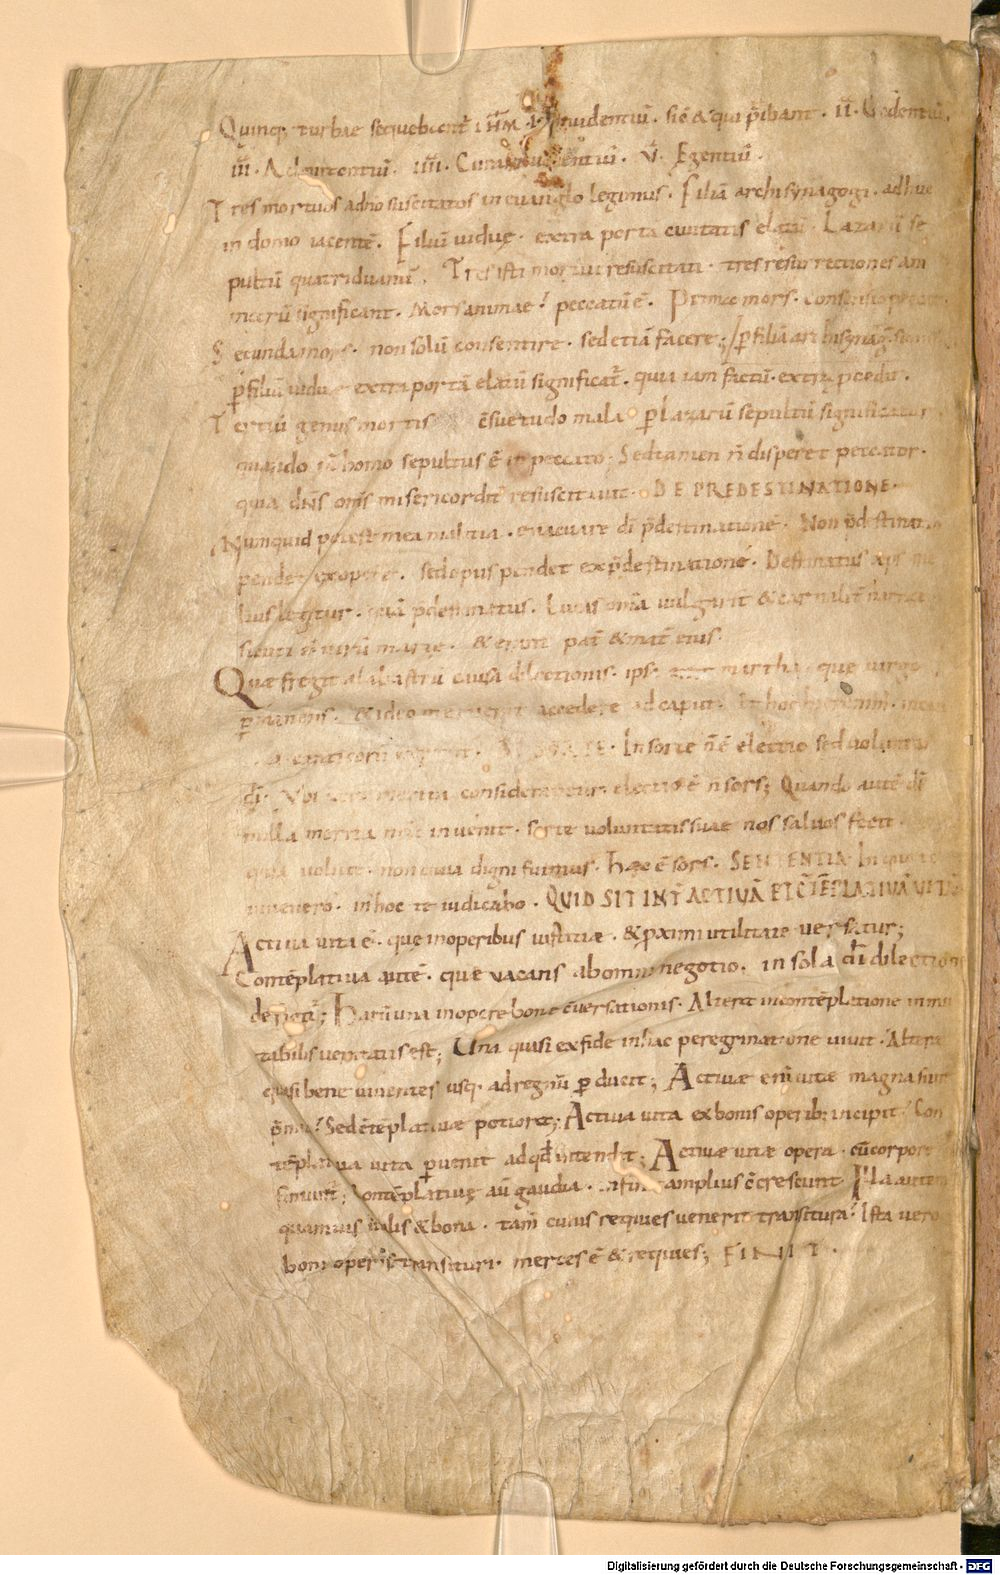 Quinq; turbae sequebant̄ inuidentiū. sic̄ & qui p̄ibant. II. Gaudentiū.
III. Admirantiū. IIII. V. Egentiū.
Tres mortuos a dn̄o suscitatos in euanglio legimus. Filiā archisynagogi. adhuc
in domo iacentē. Filiū uiduę. extra portā ciuitatis elatū. Lazarū se
pultū quatriduanū. Tres isti mortui resuscitati. tres resurrectiones am
marū significant. Mors animae? peccatū ē. Prima mors. consensio peccati
Secunda mors. non solū consentire. sed etiā facere; p̄ filiā archisynaḡ
p̄ filiū uiduę extra portā elatū significat̄. quia iam factū. extra p̄cedit.
Tertiū genus mortis c̄suetudo mala p̄ Lazarū sepultū significatur
quando iā homo sepultus ē in peccato. Sed tamen n̄ disperet peccator.
quia dn̄s om̄s misericordit̄ resuscitauit. DE PREDESTINATIONE.
Nunquid potest mea malitia. euacuare dī p̄destinationē. Non p̄destinatio
pendet ex opere. sed opus pendet ex p̄destinatione. Destinatus xp̄s me
lius legitur. quā p̄destinatus. Lucas om̄ia uulgarit̄ & carnalit̄
uirū marię. & erant pat̄ & mat̄ eius.
Quae fregit alabastrū causa dilectionis. ips. martha. que uirgo
p̄manens. & ideo meruerit accedere ad caput.
canticorū DE SORTE. In sorte n̄ ē electio sed uoluntas
dī. Vbi merita considerantur. electio ē n̄ sors; Quando autē dī
nulla merita n̄ra inuenit. sorte uoluntatis suae nos saluos fecit
quia uoluit. non quia digni fuimus. Haec ē sors. SENTENTIA. In quo te
inuenero. in hoc te iudicabo. QUID SIT INT̄ ACTIUĀ ET C̄TĒPLATIUĀ UITĀ
Actiua uita ē. que in operibus iustitiæ. & p̄ximi utilitate uersatur;
Contēplatiua autē. quę uacans ab omni negotio. in sola dī dilectione
defigit̄; Harū una in opere bonę c̄uersationis. Altera in contēplatione inmu
tabilis ueritatis est; Una quasi ex fide in hac peregrinatione uiuit. Altera
quasi bene uiuentes usq. ad regnū p̄ducit; Actiuæ enī uitae magna sunt
p̄mia? Sed c̄tēplatiuae potiora; Actiua uita ex bonis operib; incipit? Con
tēplatiua uita p̄uenit ad qđ intendit; Actiuæ uitæ opera. cū corpore
finiunt̄; Contēplatiuę aū gaudia. in fine amplius c̄crescunt. Illa autem
quamuis utilis & bona. tam̄ cum requies uenerit transitura? Ista uero
boni operis transituri. merces ē & requies; FINIT.
Digitalisierung gefördert durch die Deutsche Forschungsgemeinschaft - DFG